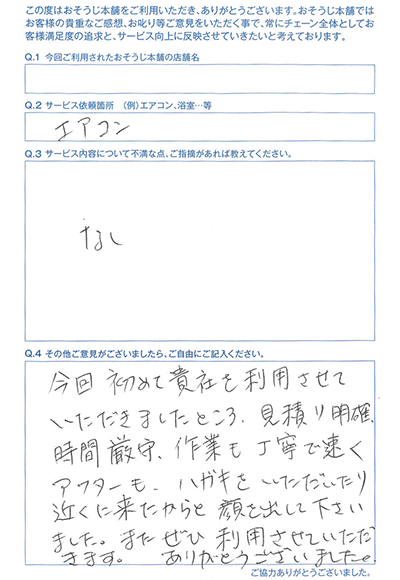 この度はおそうじ本舗をご利用いただき、ありがとうございます。おそうじ本舗では
お客様の貴重なご感想、お叱り等ご意見をいただく事で、常にチェーン全体としてお
客様満足度の追求と、サービス向上に反映させていきたいと考えております。
Q.1 今回ご利用されたおそうじ本舗の店舗名
Q.2 サービス依頼箇所 （例）エアコン、浴室…等
エアコン
Q.3 サービス内容について不満な点、ご指摘があれば教えてください。
なし
Q.4 その他ご意見がございましたら、ご自由にご記入ください。
今回 初めて貴社を利用させて
いただきましたところ、見積り明確、
時間厳守、作業も丁寧で速く
アフターも、ハガキをいただいたり
近くに来たからと顔を出して下さい
ました。またぜひ利用させていただ
きます。 ありがとうございました。
ご協力ありがとうございました。